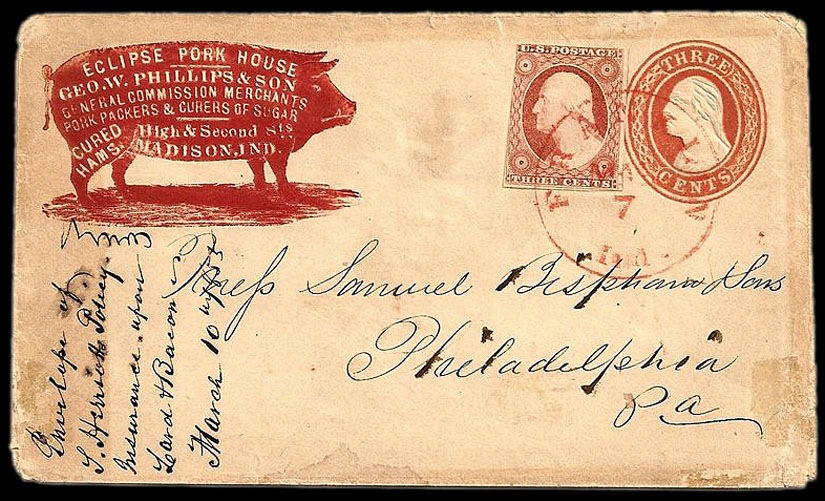 ECLIPSE PORK HOUSE
GEO. W. PHILLIPS & SON
GENERAL COMMISSION MERCHANTS
PORK PACKERS & CURERS OF SUGAR
CURED HAMS.
High & Second Sts
MADISON, IND.
U.S. POSTAGE
THREE CENTS
THREE
CENTS
7
Mess Samuel Bispham & Sons
Philadelphia
Pa
Envelope of
S. Herrick Policy
Insurance upon
Lard & Bacon
March 10